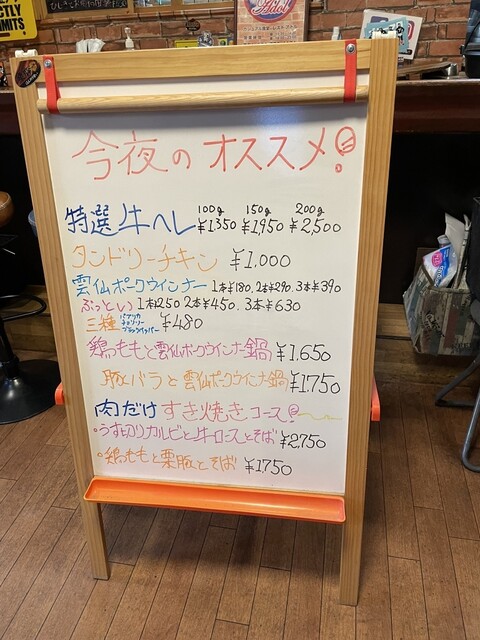 今夜のオススメ!
100g 150g 200g
特選牛ヘレ ¥1350 ¥1950 ¥2,500
タンドリーチキン ¥1,000
雲仙ポークウインナー 1本¥180, 2本¥290. 3本¥390
ぶっとい 1本250 2本¥450. 3本¥630
三種 パプリカ チョリソー ブラックペッパー ¥480
鶏ももと雲仙ポークウインナー鍋 ¥1.650
豚バラと雲仙ポークウインナー鍋 ¥1750
肉だけすき焼きコース!
・うす切りカルビと牛ロースとそば ¥2750
・鶏ももと栗豚とそば ¥1750
LIMITS